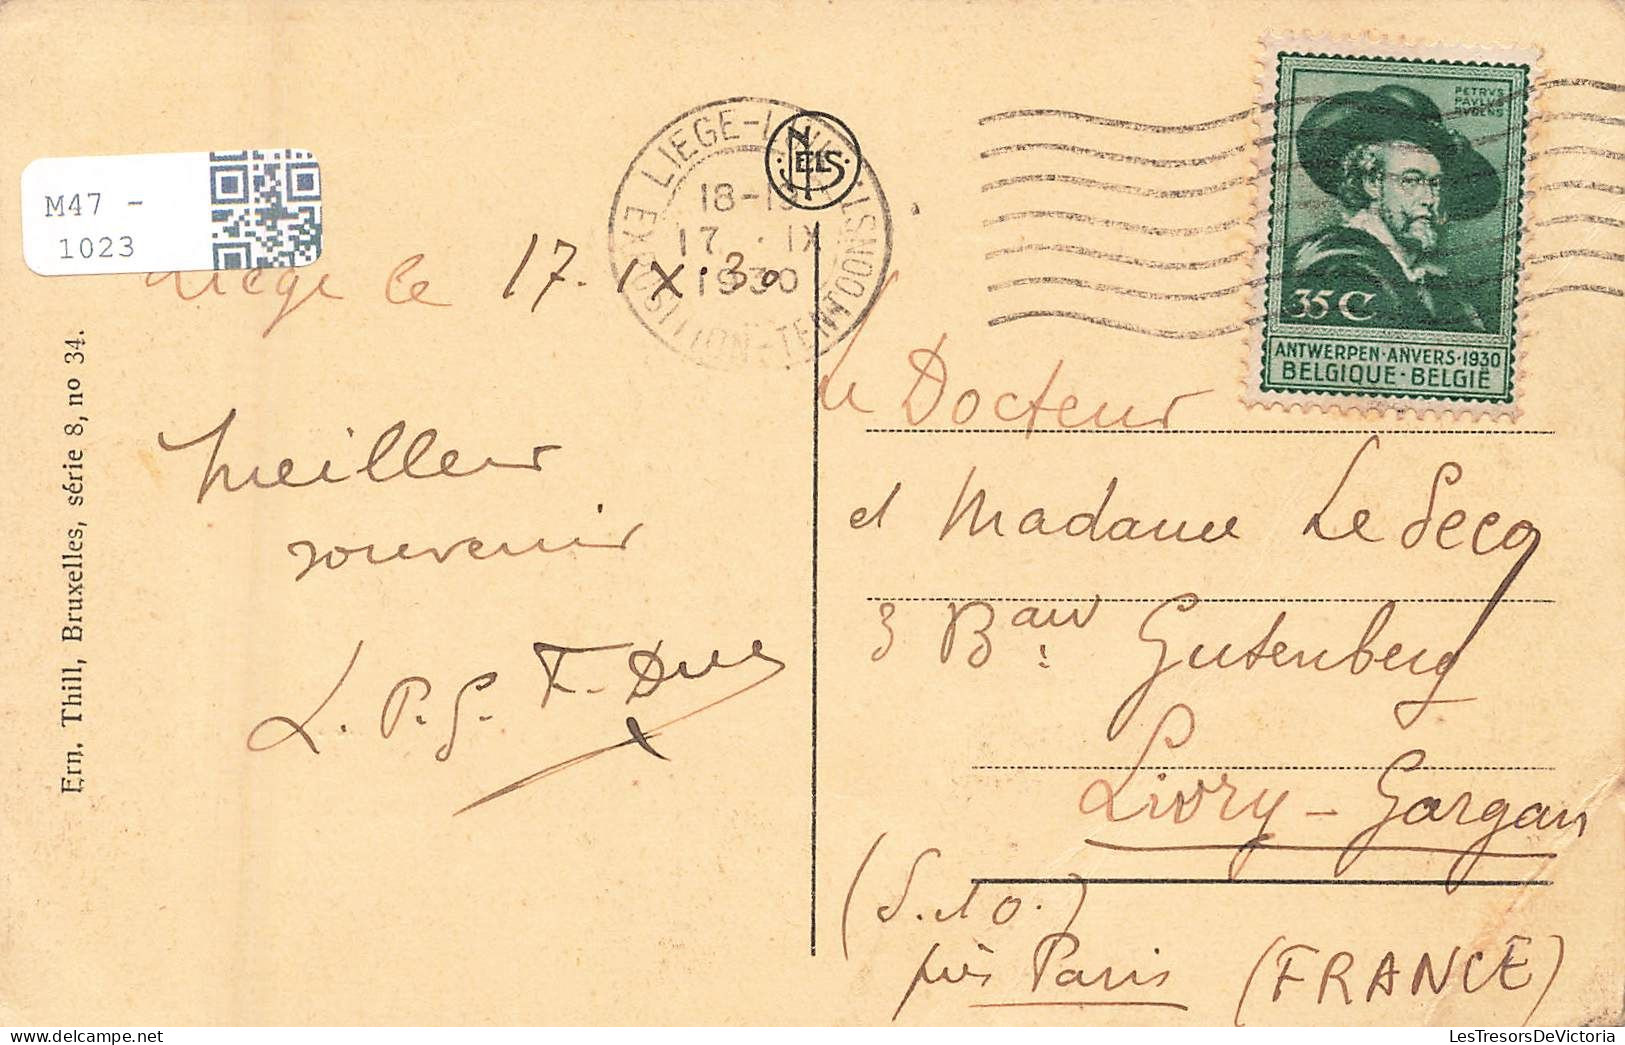 M47 -
1023
LIEGE-LUIK
18-19
17 · IX
1930
EXPOSITION-TENTOONST
NELS
PETRVS
PAVLVS
RVBENS
35 C
ANTWERPEN·ANVERS·1930
BELGIQUE·BELGIË
Liège le 17.IX.30
Meilleur
souvenir
L. P. G. F.
Ern. Thill, Bruxelles, série 8, no 34.
Le Docteur
et Madame Le Secq
3 Bau: Gutenberg
Livry - Gargan
(S. et O.)
près Paris (FRANCE)
LesTresorsDeVictoria